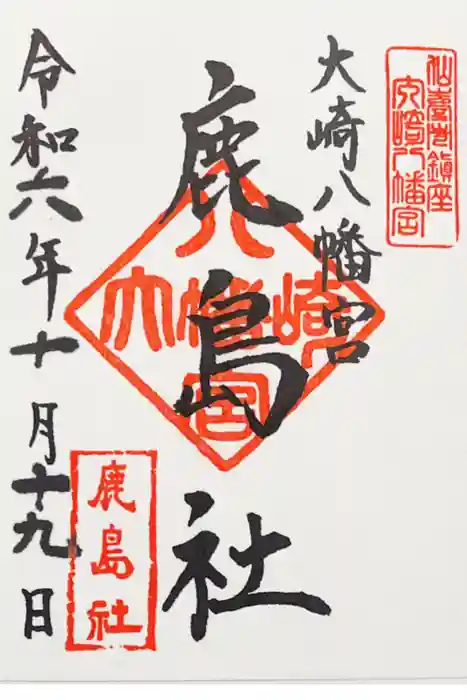 仙臺市鎮座
大崎八幡宮
大崎八幡宮
鹿島社
大崎八幡宮
鹿島社
令和六年十月十九日